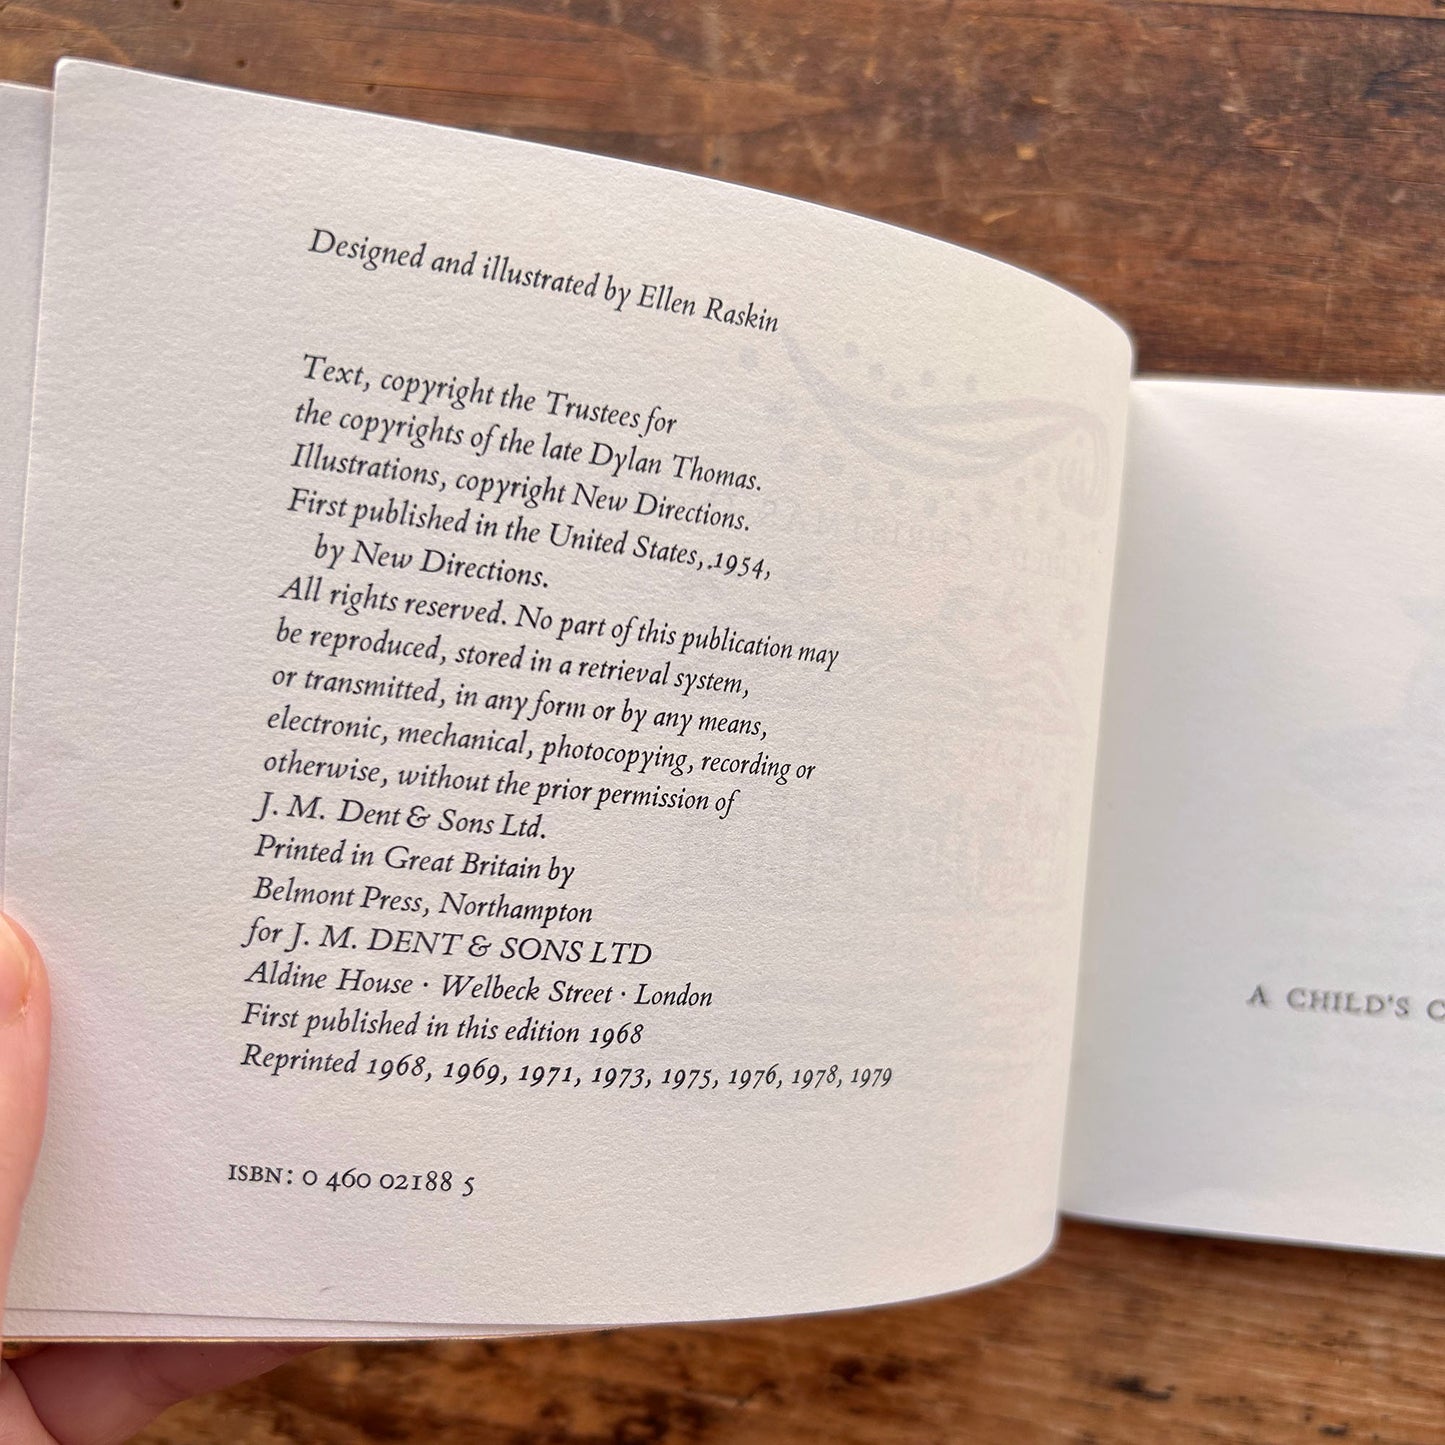 Designed and illustrated by Ellen Raskin
Text, copyright the Trustees for
the copyrights of the late Dylan Thomas.
Illustrations, copyright New Directions.
First published in the United States, .1954,
by New Directions.
All rights reserved. No part of this publication may
be reproduced, stored in a retrieval system,
or transmitted, in any form or by any means,
electronic, mechanical, photocopying, recording or
otherwise, without the prior permission of
J. M. Dent & Sons Ltd.
Printed in Great Britain by
Belmont Press, Northampton
for J. M. DENT & SONS LTD
Aldine House · Welbeck Street · London
First published in this edition 1968
Reprinted 1968, 1969, 1971, 1973, 1975, 1976, 1978, 1979
ISBN: 0 460 02188 5
A CHILD'S C